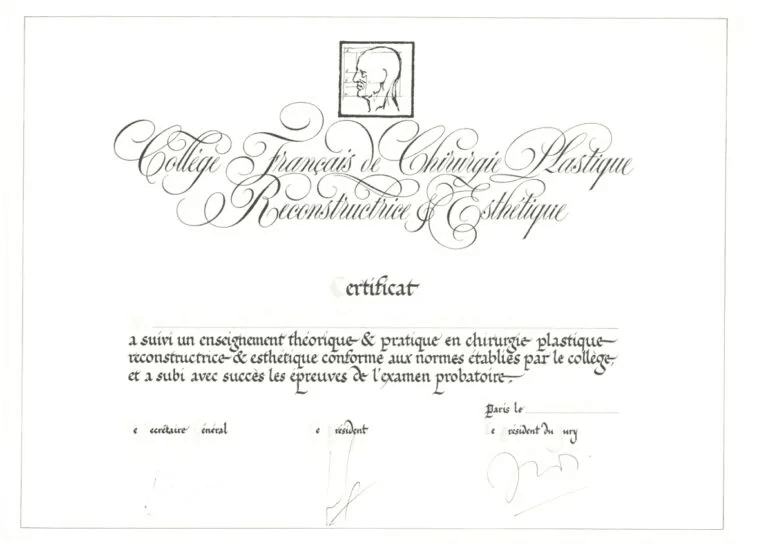 Collège Français de Chirurgie Plastique
Reconstructrice & Esthétique
ertificat
a suivi un enseignement théorique & pratique en chirurgie plastique
reconstructrice & esthétique conforme aux normes établies par le collège,
et a subi avec succès les épreuves de l'examen probatoire.
Paris le
e ecrétaire énéral e résident e résident du ury